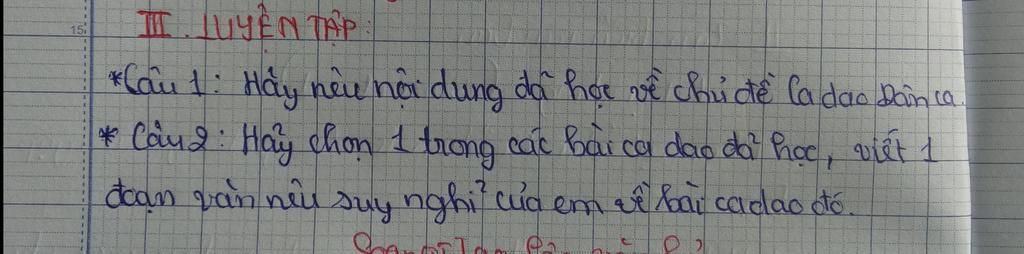 15
III. LUYỆN TẬP:
*Câu 1: Hãy nêu nội dung đã học về chủ đề Ca dao Dân ca.
* Câu 2: Hãy chọn 1 trong các bài ca dao đã học, viết 1
đoạn văn nêu suy nghỉ của em về bài ca dao đó.